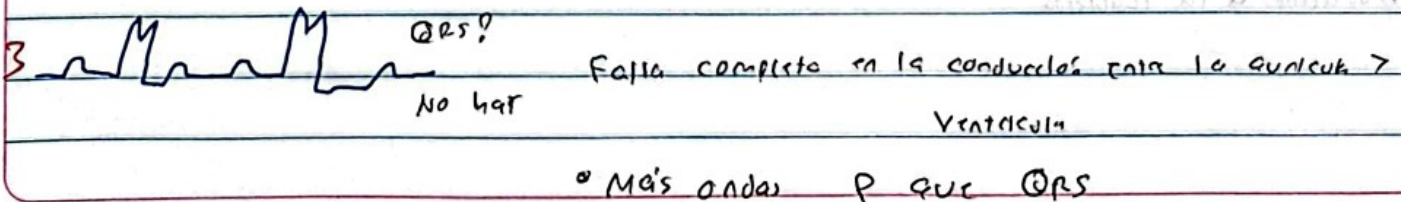 QRS?
3
Falla completo en la conducción entre la auricula >
No hay
Ventricula
• Más ondas P que QRS